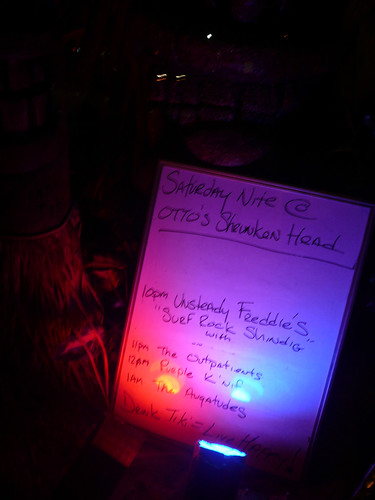 Saturday Nite @
Otto's Shrunken Head
10pm Unsteady Freddie's
"Surf Rock Shindig"
with
11pm The Outpatients
12am Purple K'nif
1am The Augatudes
Drink Tiki =